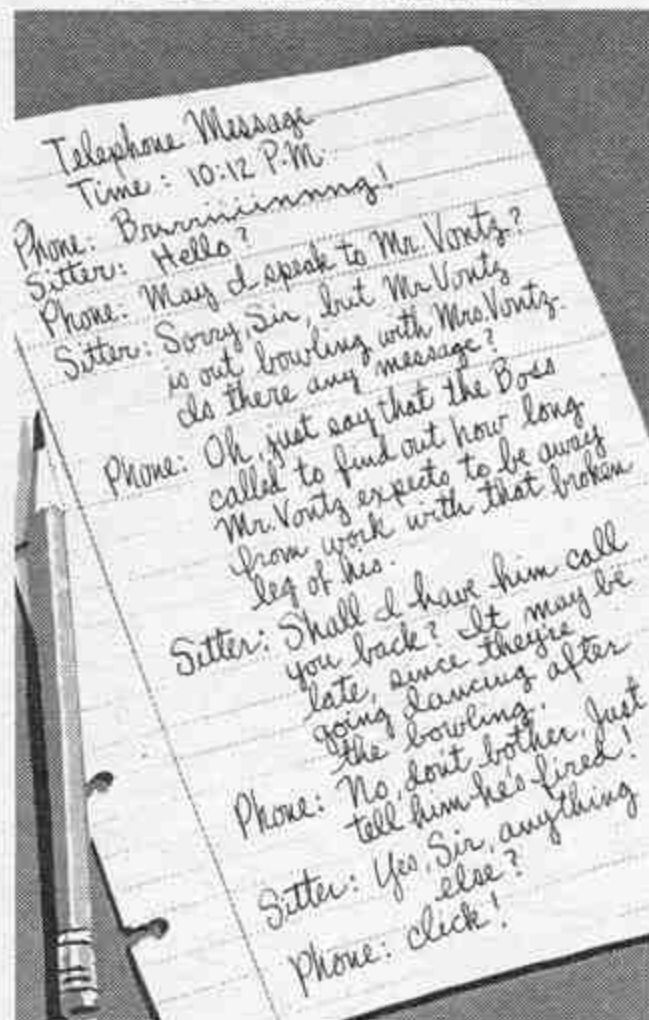 Telephone Message
Time: 10:12 P.M.
Phone: Brurriiiinnnng!
Sitter: Hello?
Phone: May I speak to Mr. Vontz?
Sitter: Sorry, Sir, but Mr Vontz
is out bowling with Mrs. Vontz.
Is there any message?
Phone: Oh, just say that the Boss
called to find out how long
Mr. Vontz expects to be away
from work with that broken
leg of his.
Sitter: Shall I have him call
you back? It may be
late, since they're
going dancing after
the bowling.
Phone: No, don't bother. Just
tell him he's fired!
Sitter: Yes, Sir, anything
else?
Phone: click!